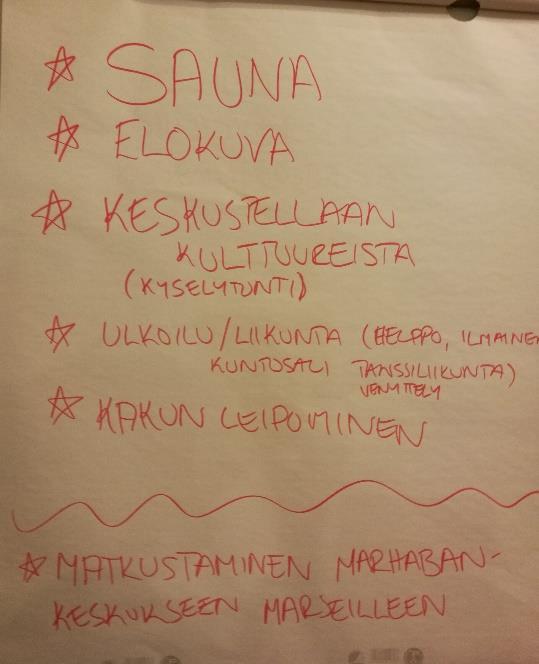 SAUNA
ELOKUVA
KESKUSTELLAAN
KULTTUUREISTA
(KYSELYTUNTI)
ULKOILU/LIIKUNTA (HELPPO, ILMAINEN
KUNTOSALI TANSSILIIKUNTA)
VENYTTELY
KAKUN LEIPOMINEN
MATKUSTAMINEN MARHABAN-
KESKUKSEEN MARSEILLEEN